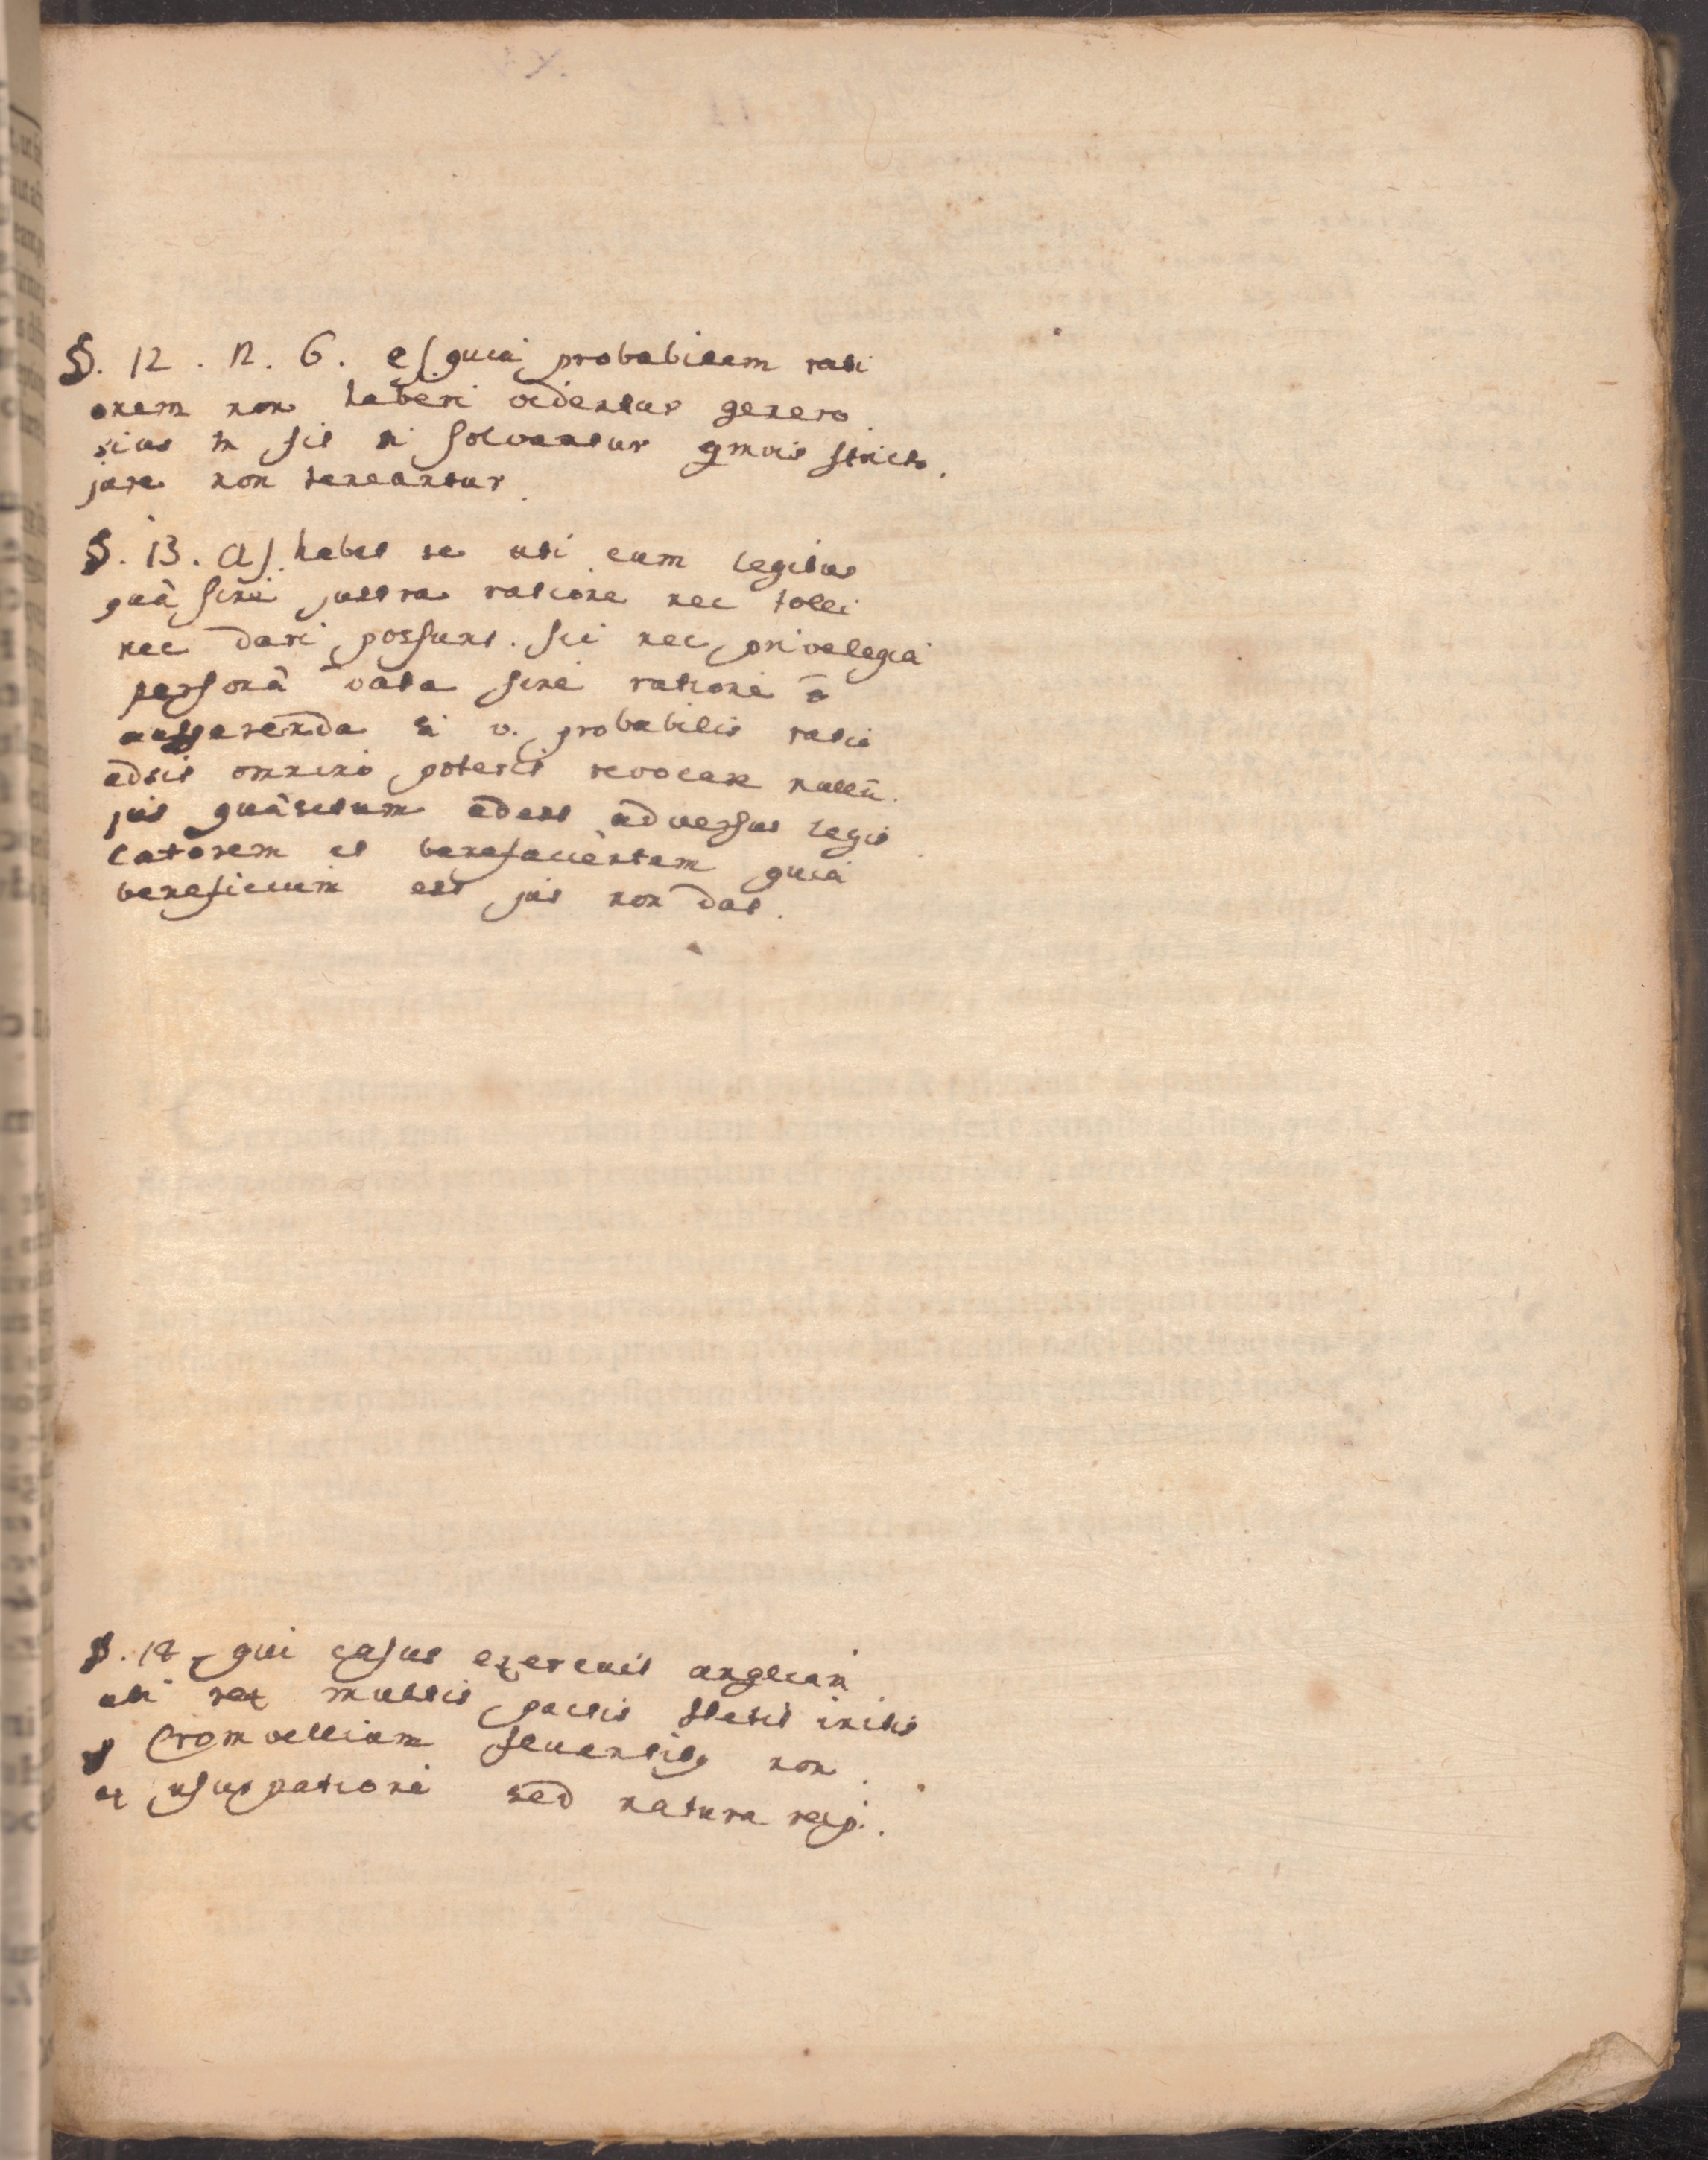 §. 12. n. 6. e/ quia probabilem rati
onem non haberi videntur genero
sius tn sit si solvantur qmvis stricto
jure non teneantur.
§. 13. a/ habet se uti cum legibus
quâ sine justa ratione nec tolli
nec dari possunt. sic nec privelegia
personâ data sine ratione ō
aufferenda si v. probabilis ratio
adsit omnino poterit revocare nullū
jus quâsitum adest adversus legis
latorem et benefacientem quia
beneficium est jus non dat.
§. 14 qui casus exercuit angliam
ubi rex multis pactis stetit initis
Cromvellium non
ex usurpatione sed natura reip.